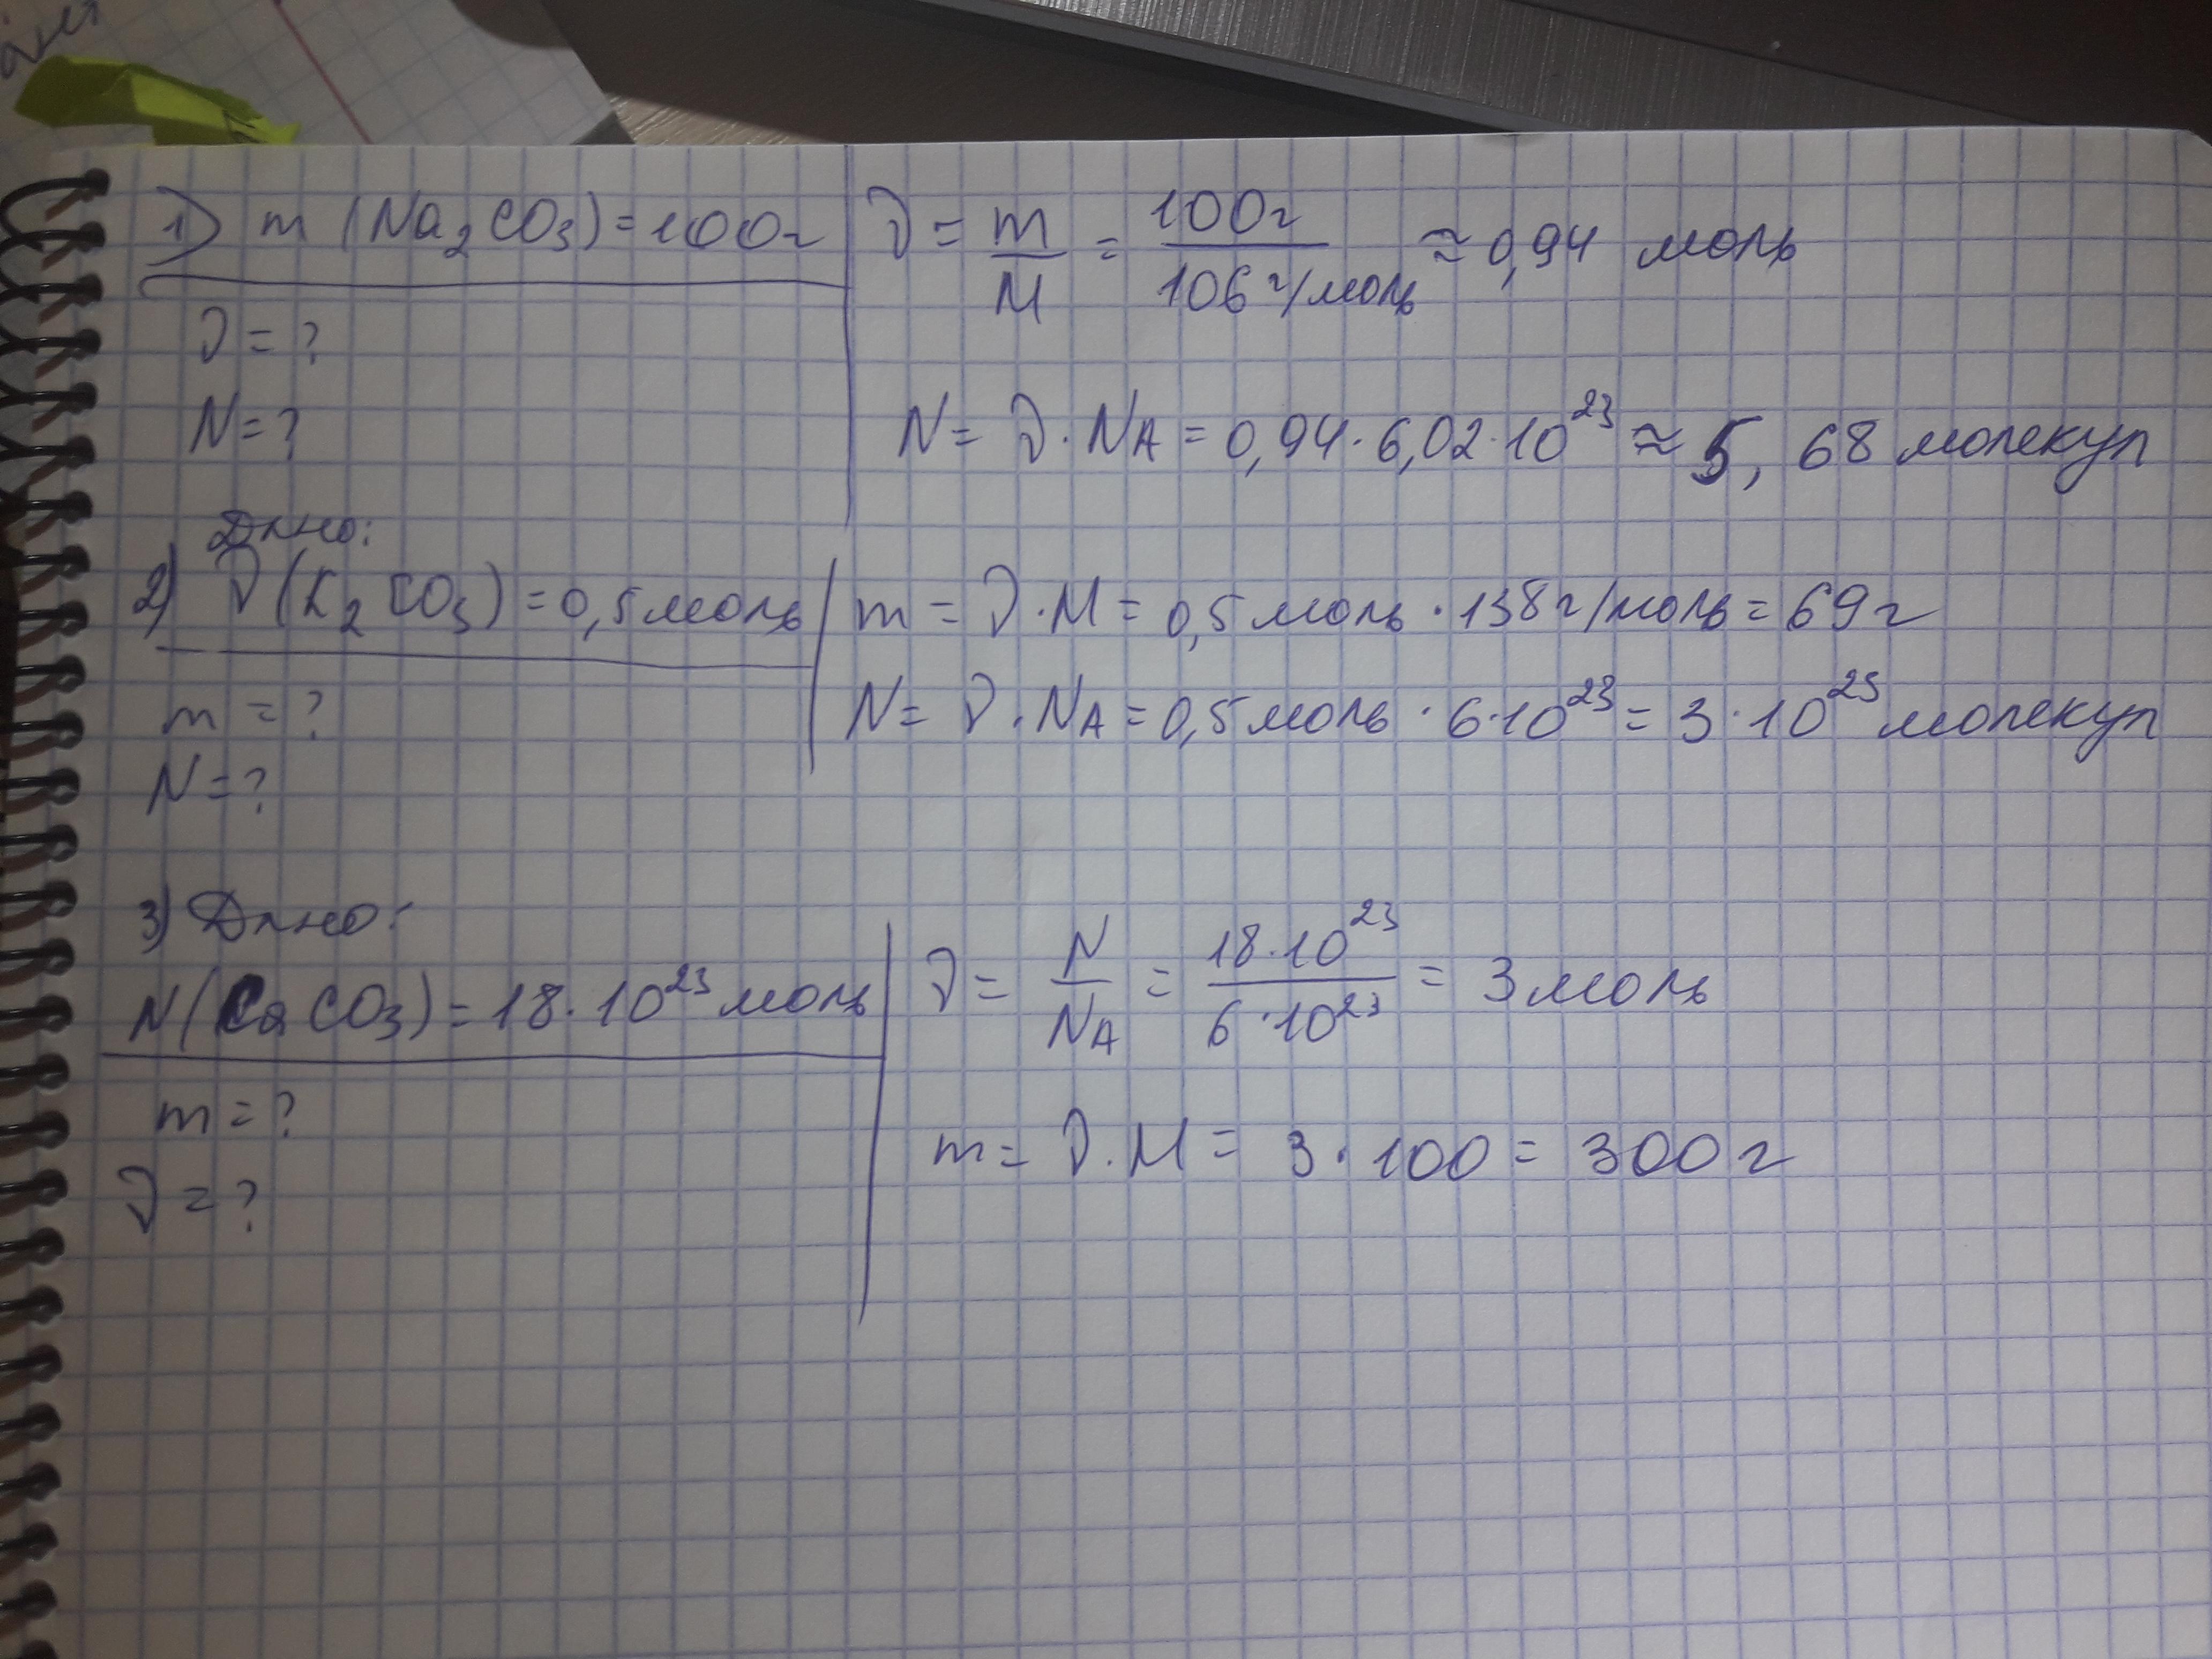 1) m (Na₂CO₃) = 100г
ν = m/M = 100г / 106 г/моль ≈ 0,94 моль
ν = ?
N = ?
N = ν · Nᴀ = 0,94 · 6,02 · 10²³ ≈ 5,68 молекул
Дано:
2) ν (K₂CO₃) = 0,5 моль
m = ν · M = 0,5 моль · 138 г/моль = 69 г
m = ?
N = ν · Nᴀ = 0,5 моль · 6 · 10²³ = 3 · 10²³ молекул
N = ?
3) Дано:
N (CaCO₃) = 18 · 10²³ моль
ν = N/Nᴀ = 18 · 10²³ / 6 · 10²³ = 3 моль
m = ?
m = ν · M = 3 · 100 = 300 г
ν = ?